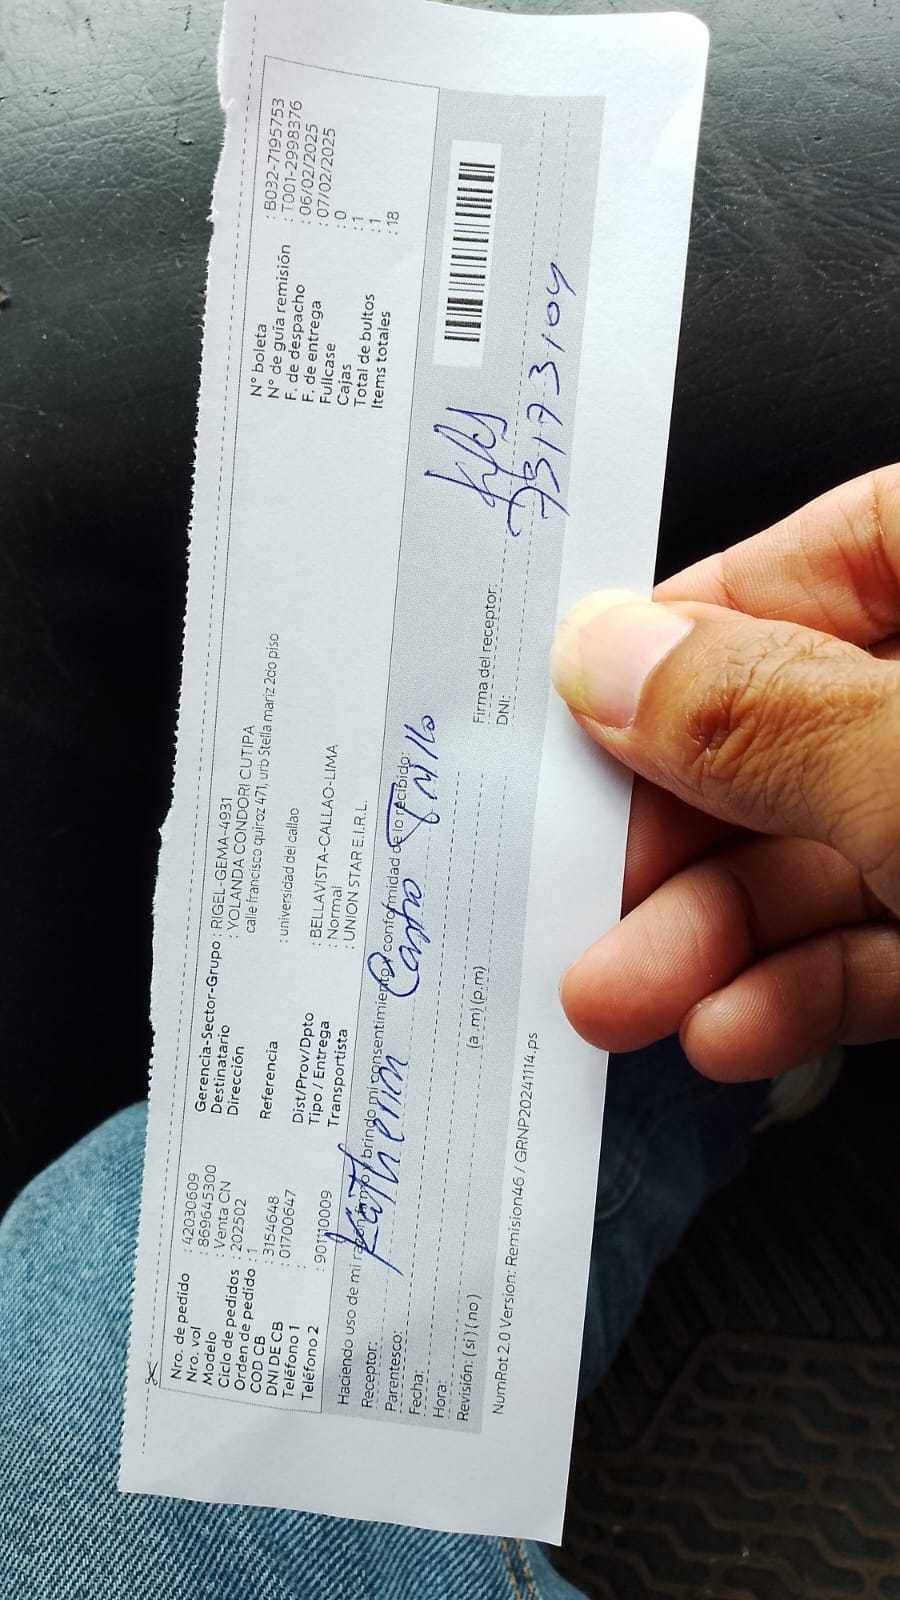 Nro. de pedido : 42030609
Nro. vol : 869645300
Modelo : Venta CN
Ciclo de pedidos : 202502
Orden de pedido : 1
COD CB : 3154648
DNI DE CB : 01700647
Teléfono 1 :
Teléfono 2 : 901110009
Gerencia-Sector-Grupo : RIGEL-GEMA-4931
Destinatario : YOLANDA CONDORI CUTIPA
Dirección calle francisco quiroz 471, urb Stella mariz 2do piso
Referencia : universidad del callao
Dist/Prov/Dpto : BELLAVISTA-CALLAO-LIMA
Tipo / Entrega : Normal
Transportista : UNION STAR E.I.R.L.
N° boleta : B032-7195753
N° de guía remisión : T001-2998376
F. de despacho : 06/02/2025
F. de entrega : 07/02/2025
Fullcase : 0
Cajas : 1
Total de bultos : 1
Items totales : 18
Haciendo uso de mi raciocinio brindo mi consentimiento y conformidad de lo recibido:
Receptor: Katherin Castro
Parentesco:
Fecha:
Hora: (a.m) (p.m)
Revisión: ( si ) ( no )
Firma del receptor:
DNI: 75173104
NumRot 2.0 Version: Remision46 / GRNP20241114.ps